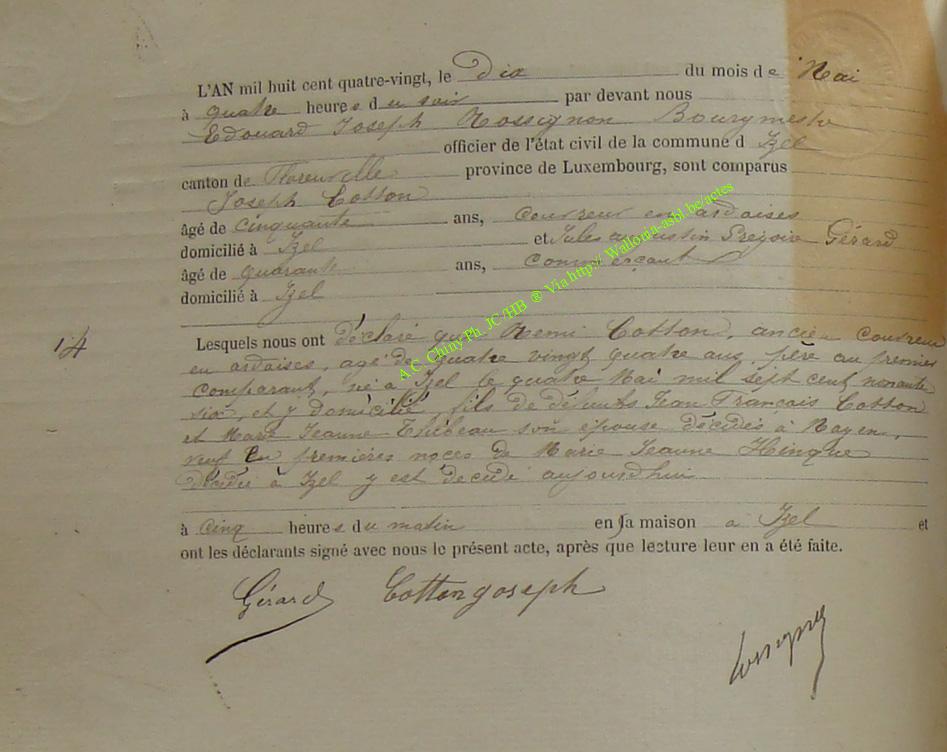 L'AN mil huit cent quatre-vingt, le Dix du mois de Mai
à quatre heures du soir par devant nous
Edouard Joseph Rossignon Bourgmestre
officier de l'état civil de la commune d Izel
canton de Florenville province de Luxembourg, sont comparus
Joseph Cotton
âgé de cinquante ans, couvreur en ardoises
domicilié à Izel et Jules Augustin Grégoire Gérard
âgé de quarante ans, commerçant
domicilié à Izel
14
Lesquels nous ont déclaré que Remi Cotton, ancien couvreur
en ardoises, agé de quatre vingt quatre ans, père au premier
comparant, né à Izel le quatre Mai mil sept cent nonante
six, et y domicilié, fils de défunts Jean François Cotton
et Marie Jeanne Thibeau son épouse décédés à Moyen,
veuf en premières noces de Marie Jeanne Hinque
décédée à Izel y est décédé aujourd'hui
à cinq heures du matin en sa maison a Izel et
ont les déclarants signé avec nous le présent acte, après que lecture leur en a été faite.
Gérard Cotton Joseph
A C Chiny Ph, JC /HB ® Via http:// Wallonia-asbl.be/actes